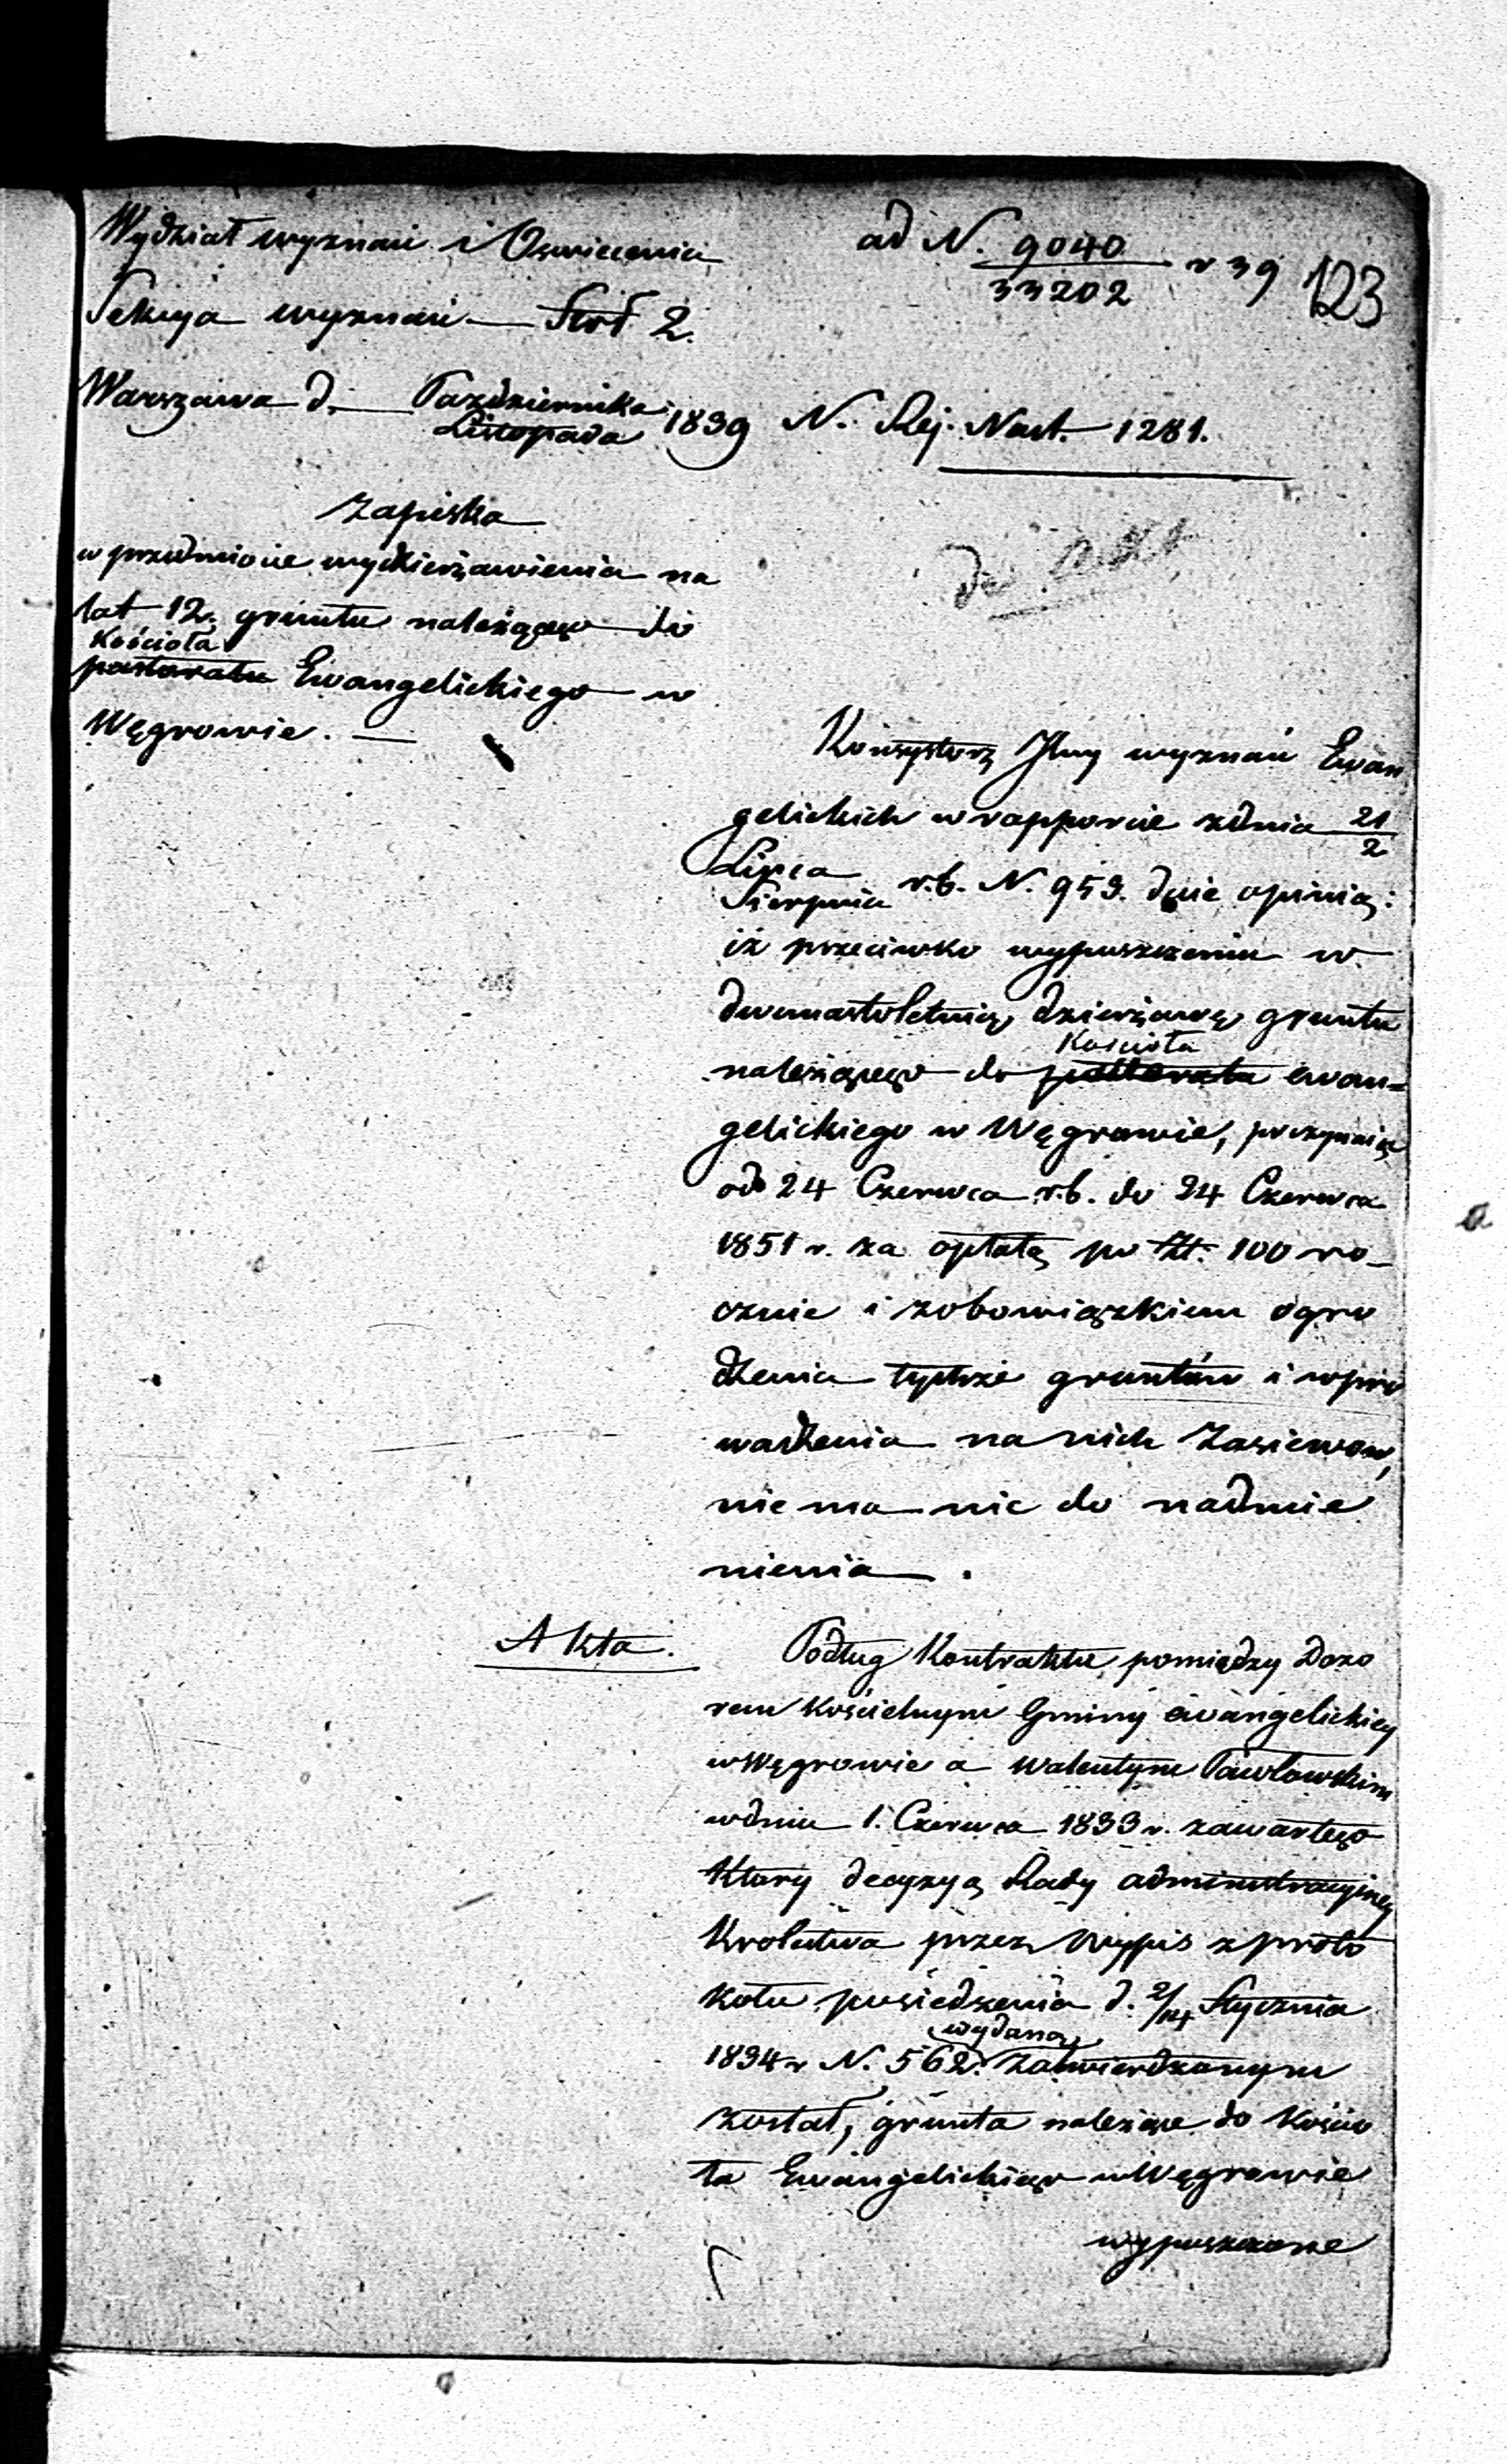 Wydział wyznań i Oswiecenia
ad N. 9040/33202 r 39
123
Sekcya wyznań — Stół 2.
Warszawa d. — Października/Listopada 1839 N. Rej. Nast. 1281.
Zapiska
w przedmiocie wydzierżawienia na
lat 12. gruntu należącego do
Kościoła
pastoratu Ewangelickiego w
Węgrowie. —
do akt
Konsystorz Jlny wyznań Ewan
gelickich w rapporcie zdnia 21/2
Lipca/Sierpnia r.b. N. 953. daie opinią:
iż przeciwko wypuszczeniu w
dwunastoletnią dzierżawę gruntu
Kościoła
należącego do pastoratu ewan=
gelickiego w Węgrowie, poczynaiąc
od 24 Czerwca r.b. do 24 Czerwca
1851 r. za opłatą po Zł. 100 ro-
cznie i zobowiązkiem ogro
dzenia tychże gruntów i wpro
wadzenia na nich Zasiewow,
nie ma nic do nadmie
nienia.
Akta.
Podług Kontraktu pomiędzy Dozo
rem Kościelnym Gminy ewangelickiey
w Węgrowie a Walentym Pawłowskim
wdniu 1. Czerwca 1833 r. zawartego
Ktory decyzyą Rady administracyiney
Krolestwa przez Wypis z proto
kołu posiedzenia d. 2/14 Stycznia
wydaną
1834 r N. 562. Zatwierdzonym
został, grunta należące do Kościo
ła Ewangelickiego w Węgrowie
wypuszczone